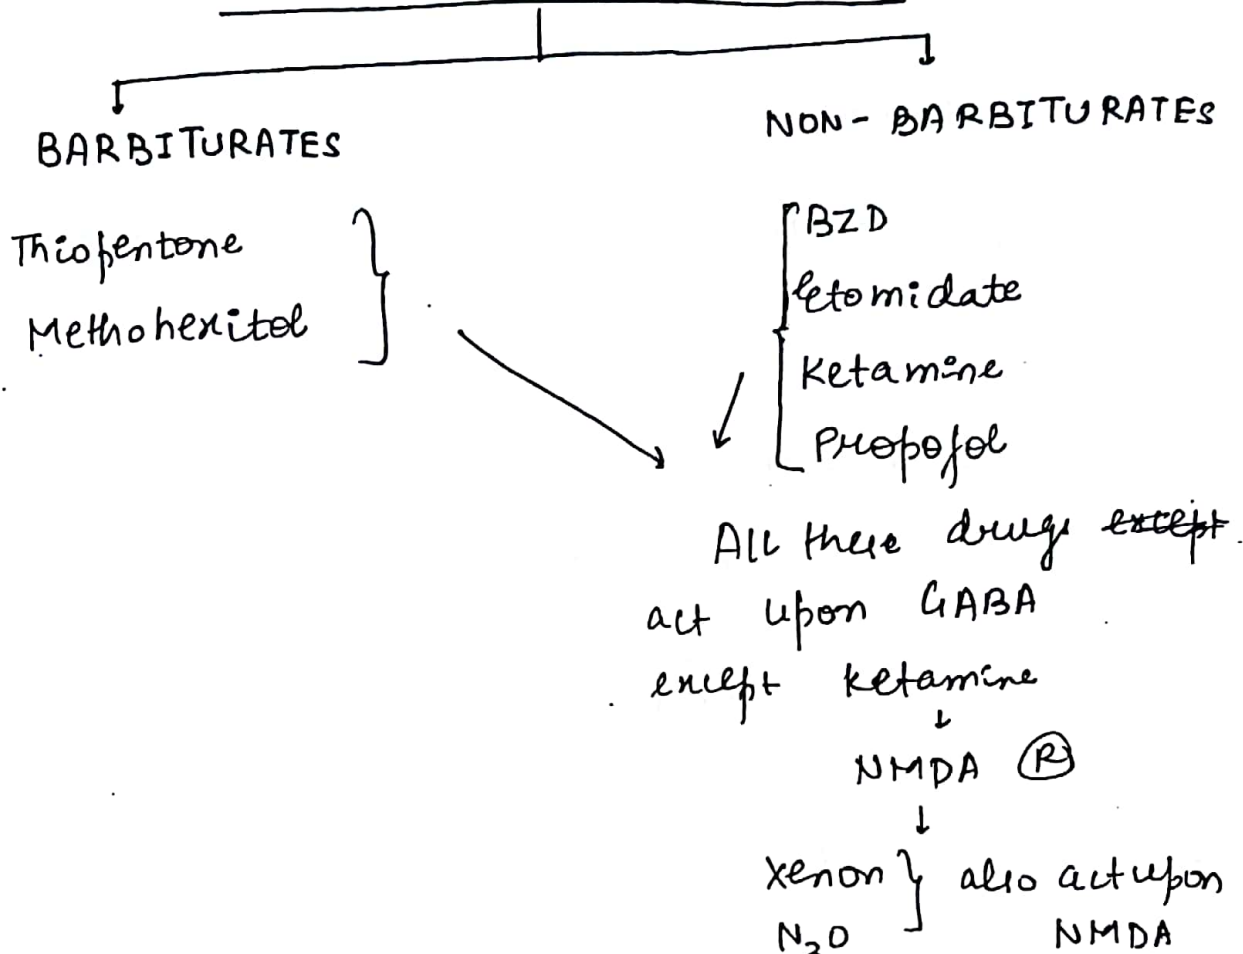 BARBITURATES
NON-BARBITURATES
Thiopentone
Methohexitol
BZD
Etomidate
Ketamine
Propofol
All these drugs except
act upon GABA
except ketamine
NMDA R
Xenon
N2O
also act upon
NMDA